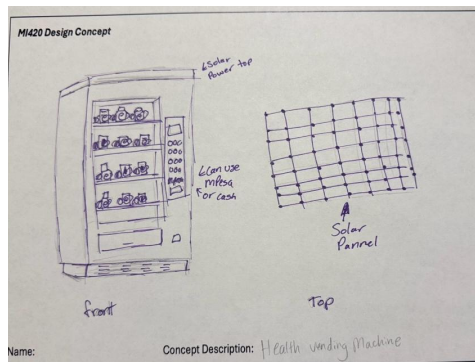 MI420 Design Concept
Solar
Power top
Can use
mpesa
or cash
Solar
Pannel
front
Top
Name:
Concept Description: Health vending Machine